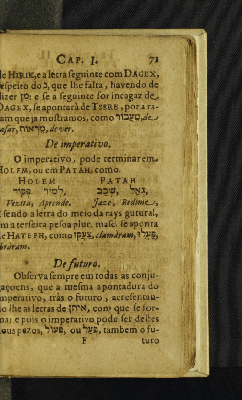 CAP. I. 71
de HIRIK, e a letra seguinte com DAGEX,
respeiro do נ, que lhe falta, havendo de
dizer מִן: e se a seguinte for incagaz de
DAGEX, se apontará de TSERE, por a ra-
zam que ja mostramos, como de
de ver.
De imperativo.
O imperativo, pode terminar em
HOLEM, ou em PATAH, como.
HOLEM PATAH
פְּקוֹד לְמוֹד שְׁכַב גְּאַל
Vezita, Aprende. Jaze, Redime,
E sendo a letra do meio da rays gutural,
em a terseira pesoa plur. masc. se aponta
de HATEPH, como clamáram,
De futuro.
Observa sempre em todas as conju-
gaçoens, que a mesma apontadura do
imperativo, trás o futuro, acresentan-
do lhe as letras de איתן, com que se for-
ma; e pois o imperativo pode ser destes
dous pezos, פְּעוֹל, ou פְּעַל, tambem o fu-
F turo